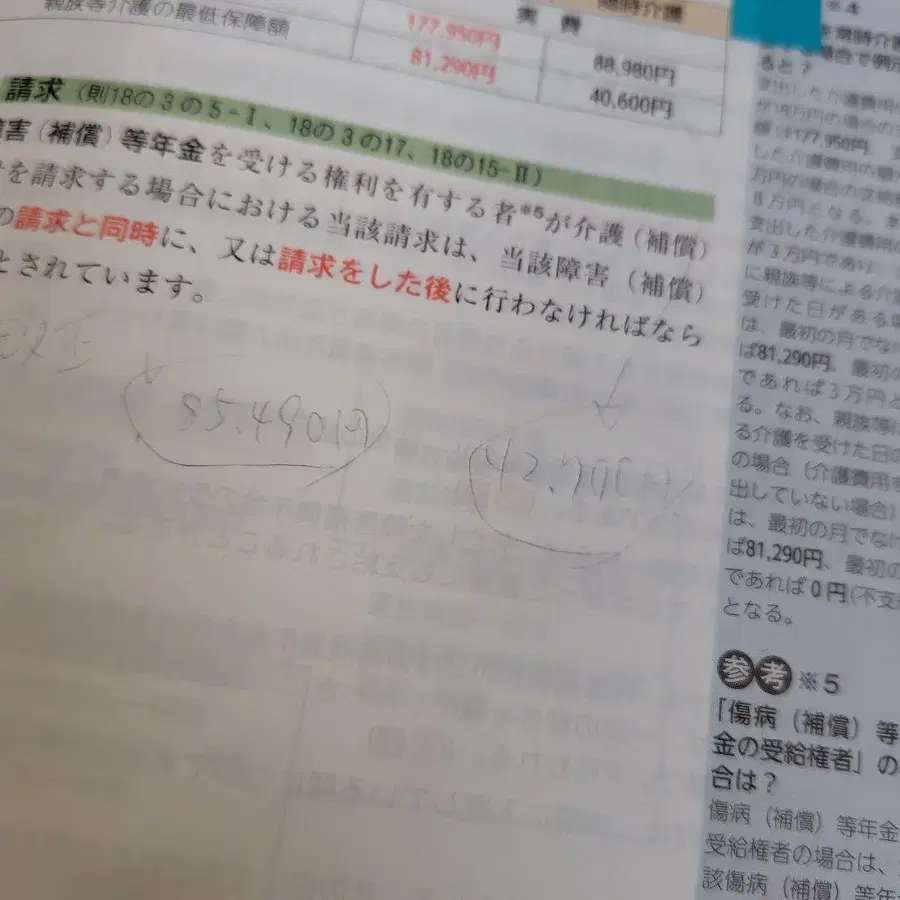 随時介護
実費
親族等介護の最低保障額
177,950円
88,980円
81,290円
40,600円
請求（則18の3の5-Ⅰ、18の3の17、18の15-Ⅱ）
害（補償）等年金を受ける権利を有する者※5が介護（補償）
を請求する場合における当該請求は、当該障害（補償）
の請求と同時に、又は請求をした後に行わなければなら
とされています。
85.490円
※4
常時介護
場合で例示
ると？
支出した介護費用
が18万円の場合の
額は177,950円、
した介護費用の額
万円の場合の支給
8万円となる。
支出した介護費用
が3万円であり、
に親族等による介
受けた日がある場
は、最初の月でな
ば81,290円、最初の
であれば3万円と
る。なお、親族等に
る介護を受けた日の
の場合（介護費用を
出していない場合）
は、最初の月でなけ
ば81,290円、最初の
であれば0円（不支
となる。
参考 ※5
「傷病（補償）等
金の受給権者」の
合は？
傷病（補償）等年金
受給権者の場合は、
該傷病（補償）等年